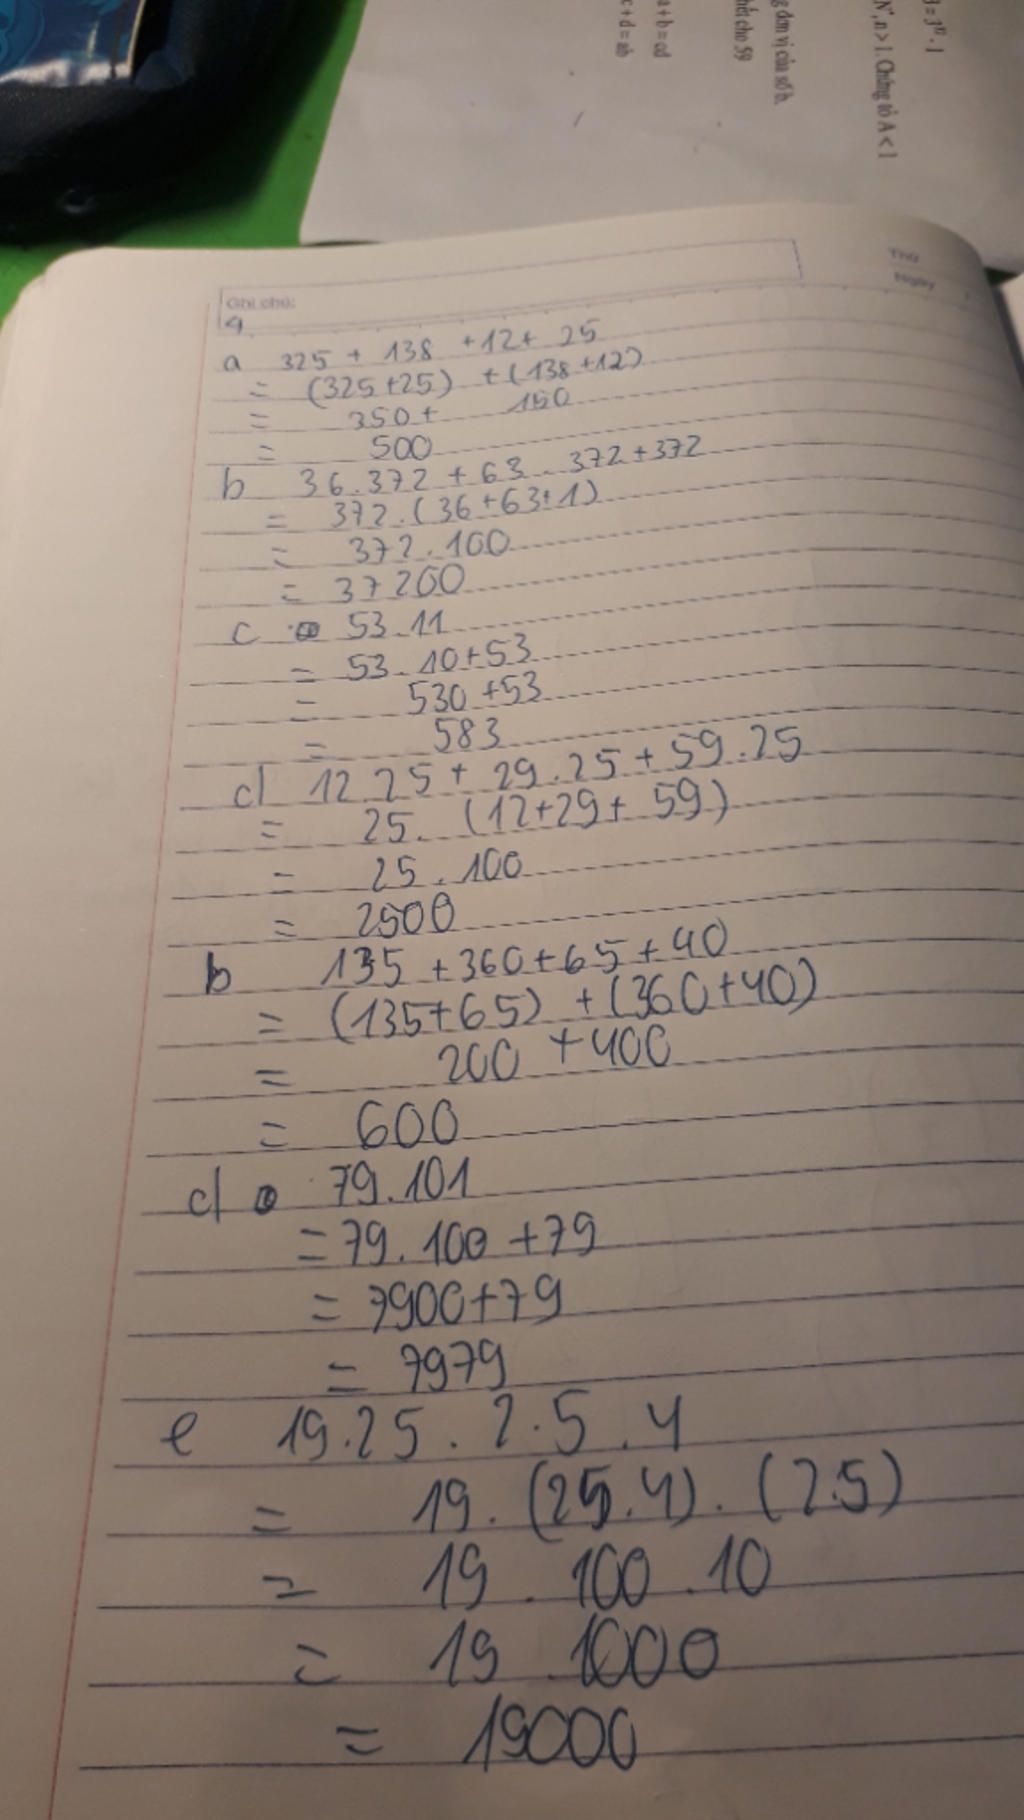 3 = 3¹² - 1
N*, n > 1. Chứng tỏ A < 1
đơn vị của số b.
hết cho 59
a + b = cd
c + d = ab
Ghi chú:
Thứ
Ngày
4
a 325 + 138 + 12 + 25
= (325+25) + (138+12)
= 350 + 150
= 500
b 36.372 + 63.372+372
= 372.(36+63+1)
= 372.100
= 37200
c 53.11
= 53.10+53
= 530+53
= 583
d 12.25 + 29.25 + 59.25
= 25.(12+29+59)
= 25.100
= 2500
b 135 + 360 + 65 + 40
= (135+65) + (360+40)
= 200 + 400
= 600
d 79.101
= 79.100 + 79
= 7900+79
= 7979
e 19.25.2.5.4
= 19.(25.4).(2.5)
= 19.100.10
= 19 1000
= 19000